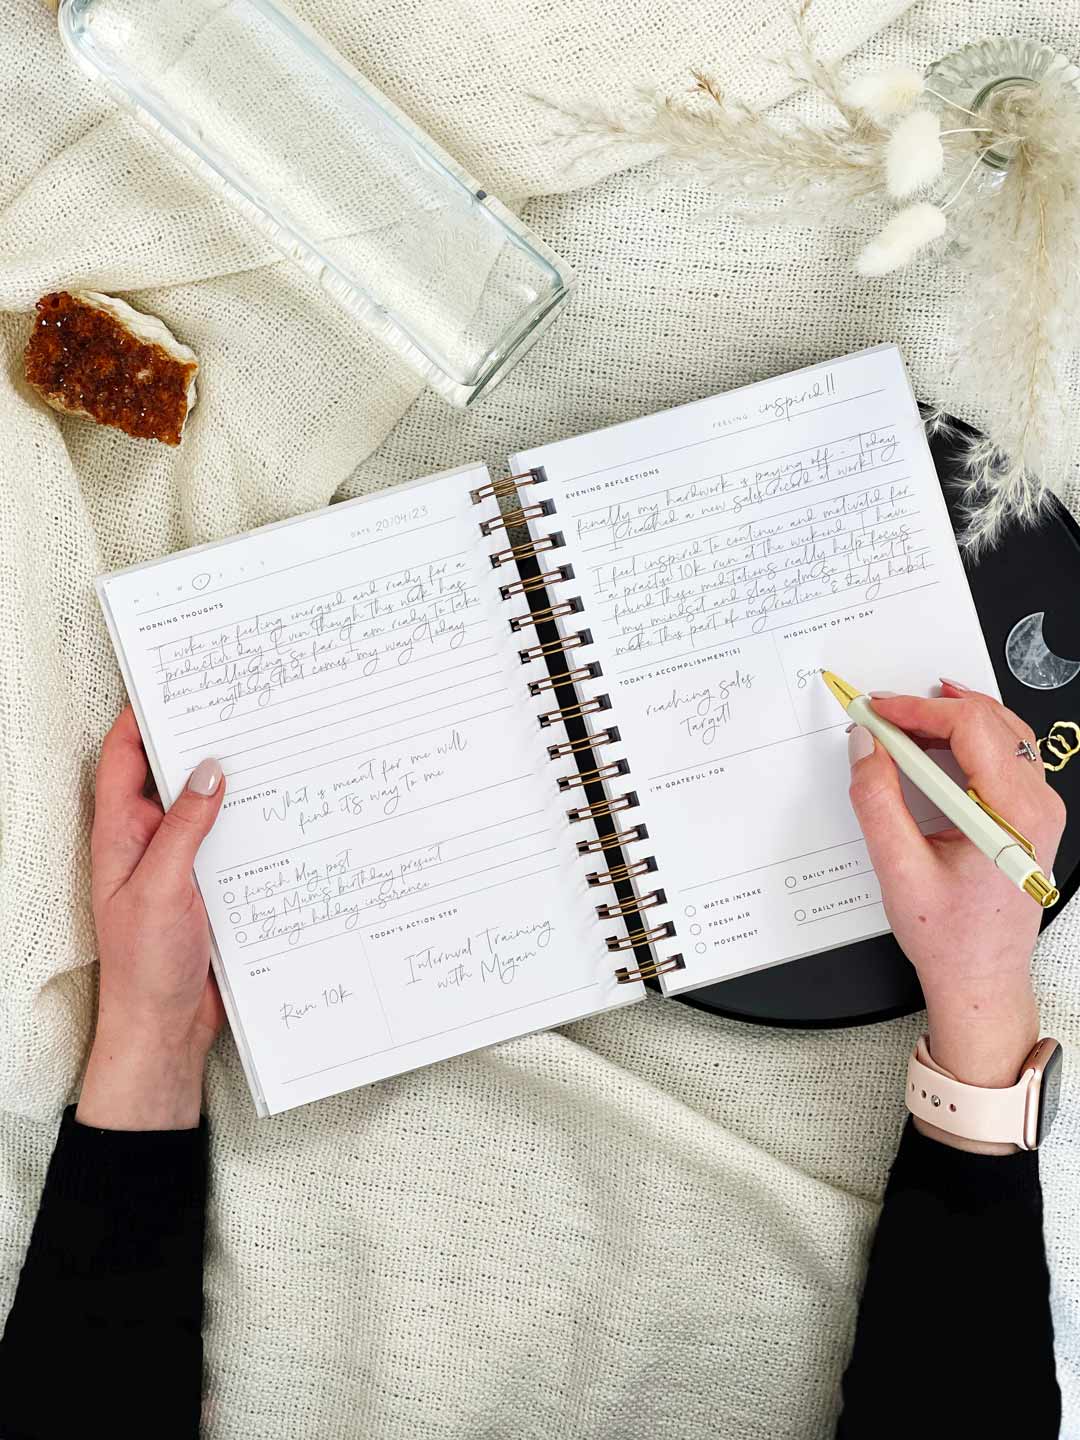 DATE 20/04/23
M T W T F S S
MORNING THOUGHTS
I woke up feeling energised and ready for a
productive day. Even though this week has
been challenging so far, I am ready to take
on anything that comes my way today
AFFIRMATION
What is meant for me will
find it's way to me
TOP 3 PRIORITIES
finsih blog post
buy Mum's birthday present
arrange holiday insurance
GOAL
Run 10k
TODAY'S ACTION STEP
Internval Training
with Megan
FEELING inspired!!
EVENING REFLECTIONS
Finally my hardwork is paying off - Today
I reached a new sales record at work!
I feel inspired to continue and motivated for
a practise 10k run at the weekend. I have
found these meditations really help focus
my mindset and stay calm so I want to
make this part of my routine & daily habit
TODAY'S ACCOMPLISHMENT(S)
reaching sales
Target!
HIGHLIGHT OF MY DAY
I'M GRATEFUL FOR
WATER INTAKE
FRESH AIR
MOVEMENT
DAILY HABIT 1:
DAILY HABIT 2: